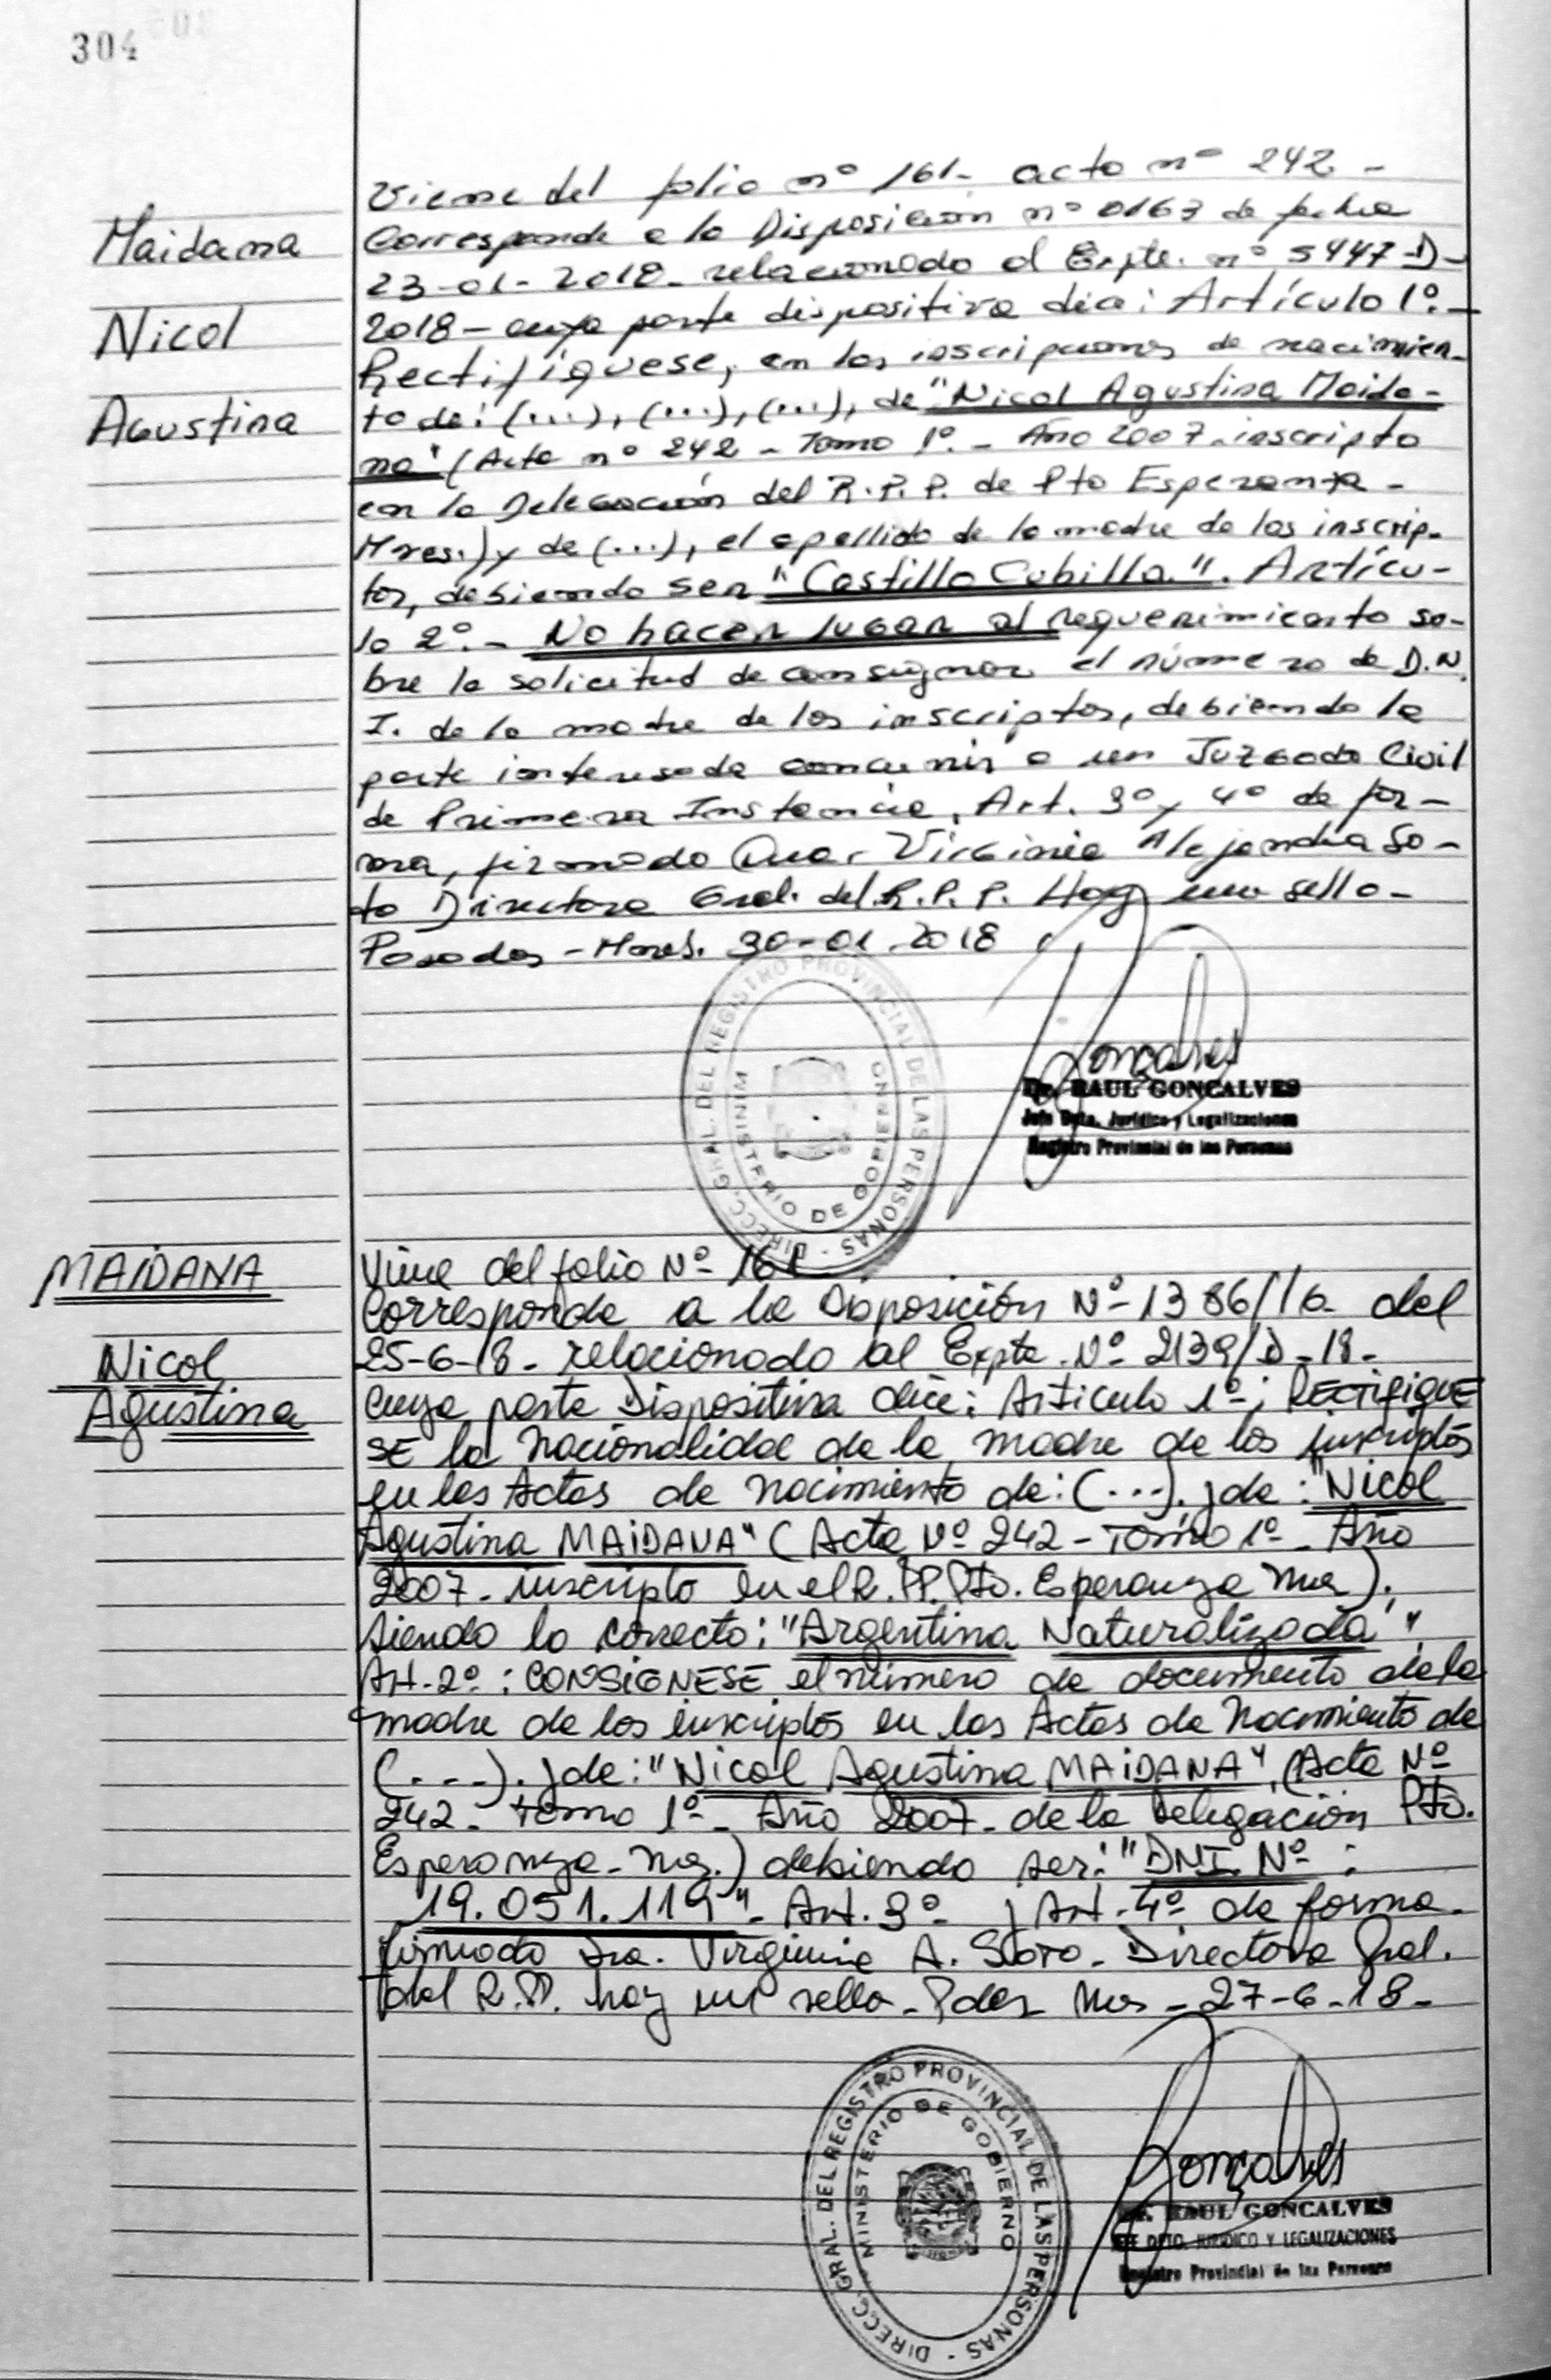 304
Maidana
Nicol
Agustina
Viene del folio nº 161- acta nº 242 -
Corresponde a la Disposición nº 0163 de fecha
23-01-2018- relacionado al Expte. nº 5447-D-
2018- cuya parte dispositiva dice: Artículo 1º.-
Rectifíquese, en las inscripciones de nacimien-
to de: (...), (...), (...), de "Nicol Agustina Maida-
na" (Acta nº 242 - Tomo 1º.- Año 2007- inscripta
en la Delegación del R.P.P. de Pto Esperanza -
Mnes.) y de (...), el apellido de la madre de los inscrip-
tos, debiendo ser "Castillo Cubilla.". Artícu-
lo 2º.- No hacer lugar al requerimiento so-
bre la solicitud de consignar el número de D.N.
I. de la madre de los inscriptos, debiendo la
parte interesada concurrir a un Juzgado Civil
de Primera Instancia, Art. 3º y 4º de for-
ma, firmado Dra. Virginia Alejandra So-
to Directora Gral. del R.P.P. Hay un sello-
Posadas - Mnes. 30-01-2018
DIRECC. GRAL. DEL REGISTRO PROVINCIAL DE LAS PERSONAS -
MINISTERIO DE GOBIERNO
Gonçalves
Dr. RAUL GONCALVES
Jefe Dpto. Jurídico y Legalizaciones
Registro Provincial de las Personas
MAIDANA
Nicol
Agustina
Viene del folio Nº 161
Corresponde a la Disposición Nº 1386/ del
25-6-18- relacionado al Expte. Nº 2139/D-18-
cuya parte Dispositiva dice: Articulo 1º; RECTIFIQUE
SE la nacionalidad de la madre de los inscriptos
en las Actas de nacimiento de: (...). y de: "Nicol
Agustina MAIDANA" (Acta Nº 242 - Tomo 1º - Año
2007- inscripto en el R.PP. Pto. Esperanza Mnes).
siendo lo correcto: "Argentina Naturalizada".
Art. 2º: CONSIGNESE el número de documento de la
madre de los inscriptos en las Actas de Nacimiento de
(...). y de: "Nicol Agustina MAIDANA", (Acta Nº
242- Tomo 1º- Año 2007- de la delegación Pto.
Esperanza- Mnes.) debiendo ser: "DNI. Nº :
19.051.119"- Art. 3º y Art. 4º de forma-
firmado Dra. Virginia A. Soto- Directora Gral.
del R.PP. hay un sello- Pdas Mnes - 27-6-18-
DIRECC. GRAL. DEL REGISTRO PROVINCIAL DE LAS PERSONAS -
MINISTERIO DE GOBIERNO
Gonçalves
Dr. RAUL GONCALVES
JEFE DPTO. JURIDICO Y LEGALIZACIONES
Registro Provincial de las Personas